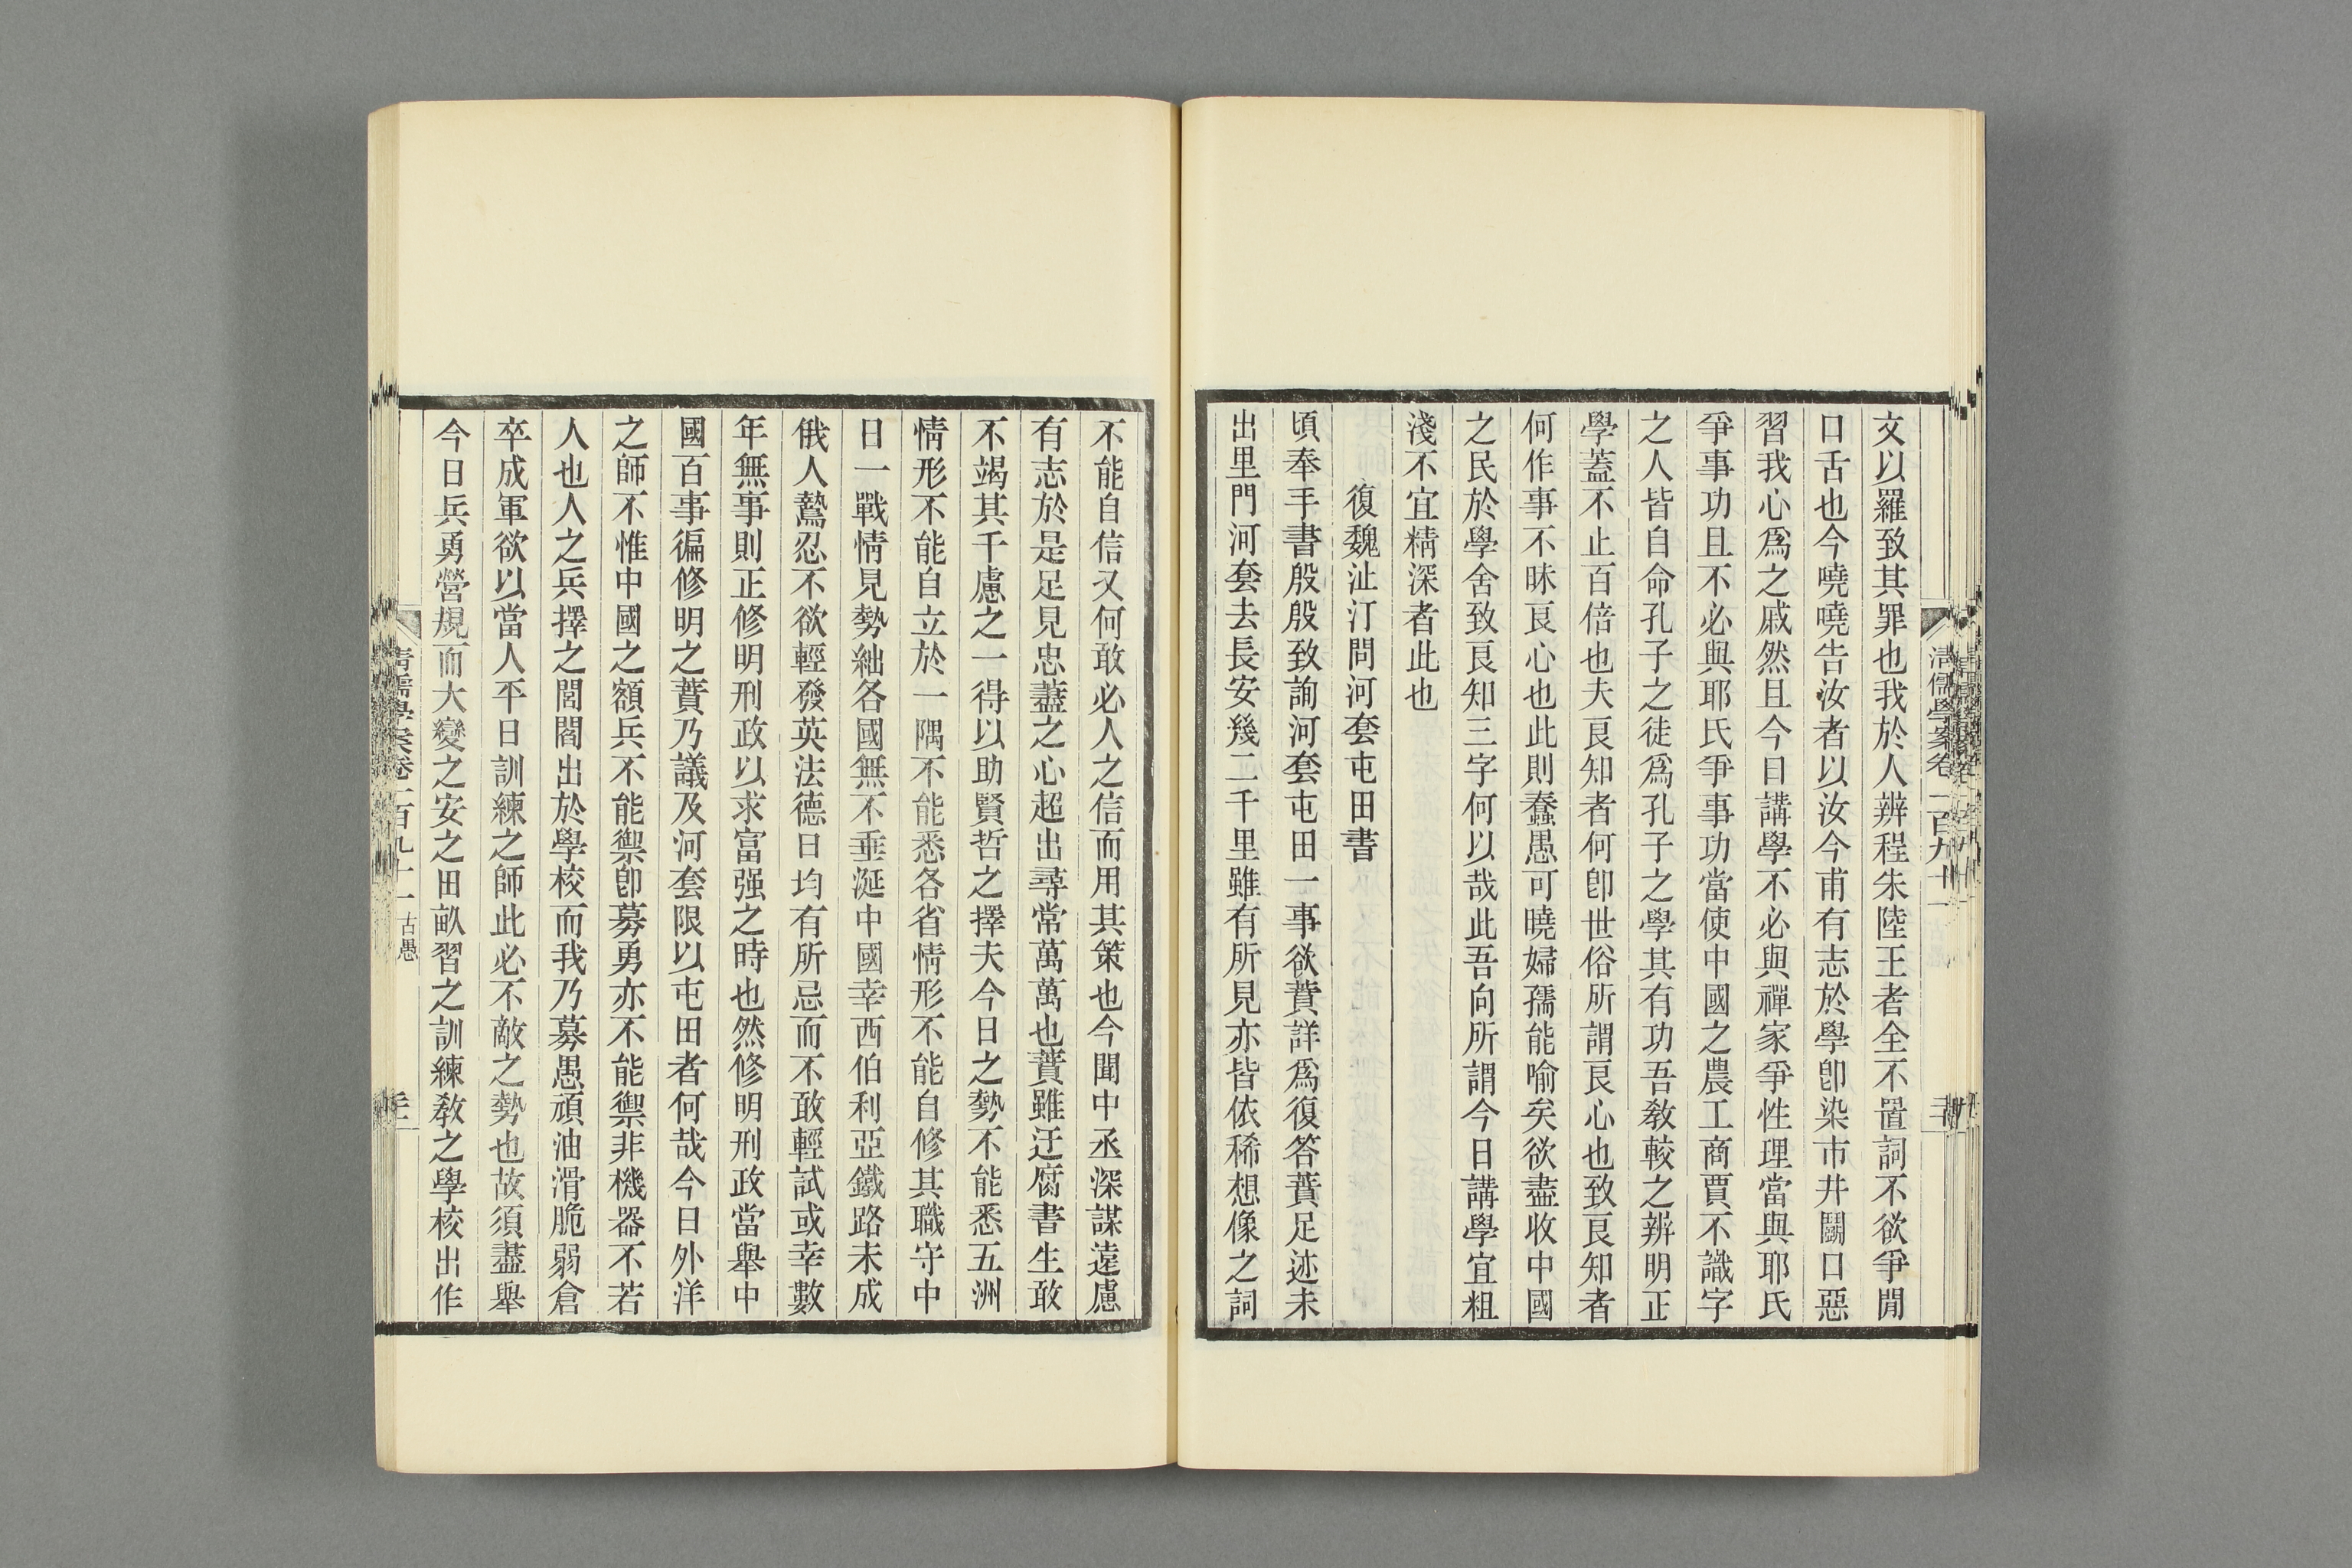 文以羅致其罪也我於人辨程朱陸王者全不置詞不欲爭閒
口舌也今嘵嘵告汝者以汝今甫有志於學卽染市井鬬口惡
習我心爲之戚然且今日講學不必與禪家爭性理當與耶氏
爭事功且不必與耶氏爭事功當使中國之農工商賈不識字
之人皆自命孔子之徒爲孔子之學其有功吾敎較之辨明正
學蓋不止百倍也夫良知者何卽世俗所謂良心也致良知者
何作事不昧良心也此則蠢愚可曉婦孺能喻矣欲盡收中國
之民於學舍致良知三字何以哉此吾向所謂今日講學宜粗
淺不宜精深者此也
復魏沚汀問河套屯田書
頃奉手書殷殷致詢河套屯田一事欲蕡詳爲復答蕡足迹未
出里門河套去長安幾二千里雖有所見亦皆依稀想像之詞
清儒學案卷一百九十一
不能自信又何敢必人之信而用其策也今聞中丞深謀遠慮
有志於是足見忠藎之心超出尋常萬萬也蕡雖迂腐書生敢
不竭其千慮之一得以助賢哲之擇夫今日之勢不能悉五洲
情形不能自立於一隅不能悉各省情形不能自修其職守中
日一戰情見勢絀各國無不垂涎中國幸西伯利亞鐵路未成
俄人鷙忍不欲輕發英法德日均有所忌而不敢輕試或幸數
年無事則正修明刑政以求富强之時也然修明刑政當舉中
國百事徧修明之蕡乃議及河套限以屯田者何哉今日外洋
之師不惟中國之額兵不能禦卽募勇亦不能禦非機器不若
人也人之兵擇之閭閻出於學校而我乃募愚頑油滑脆弱倉
卒成軍欲以當人平日訓練之師此必不敵之勢也故須盡舉
今日兵勇營規而大變之安之田畝習之訓練敎之學校出作
清儒學案卷一百九十一 古愚